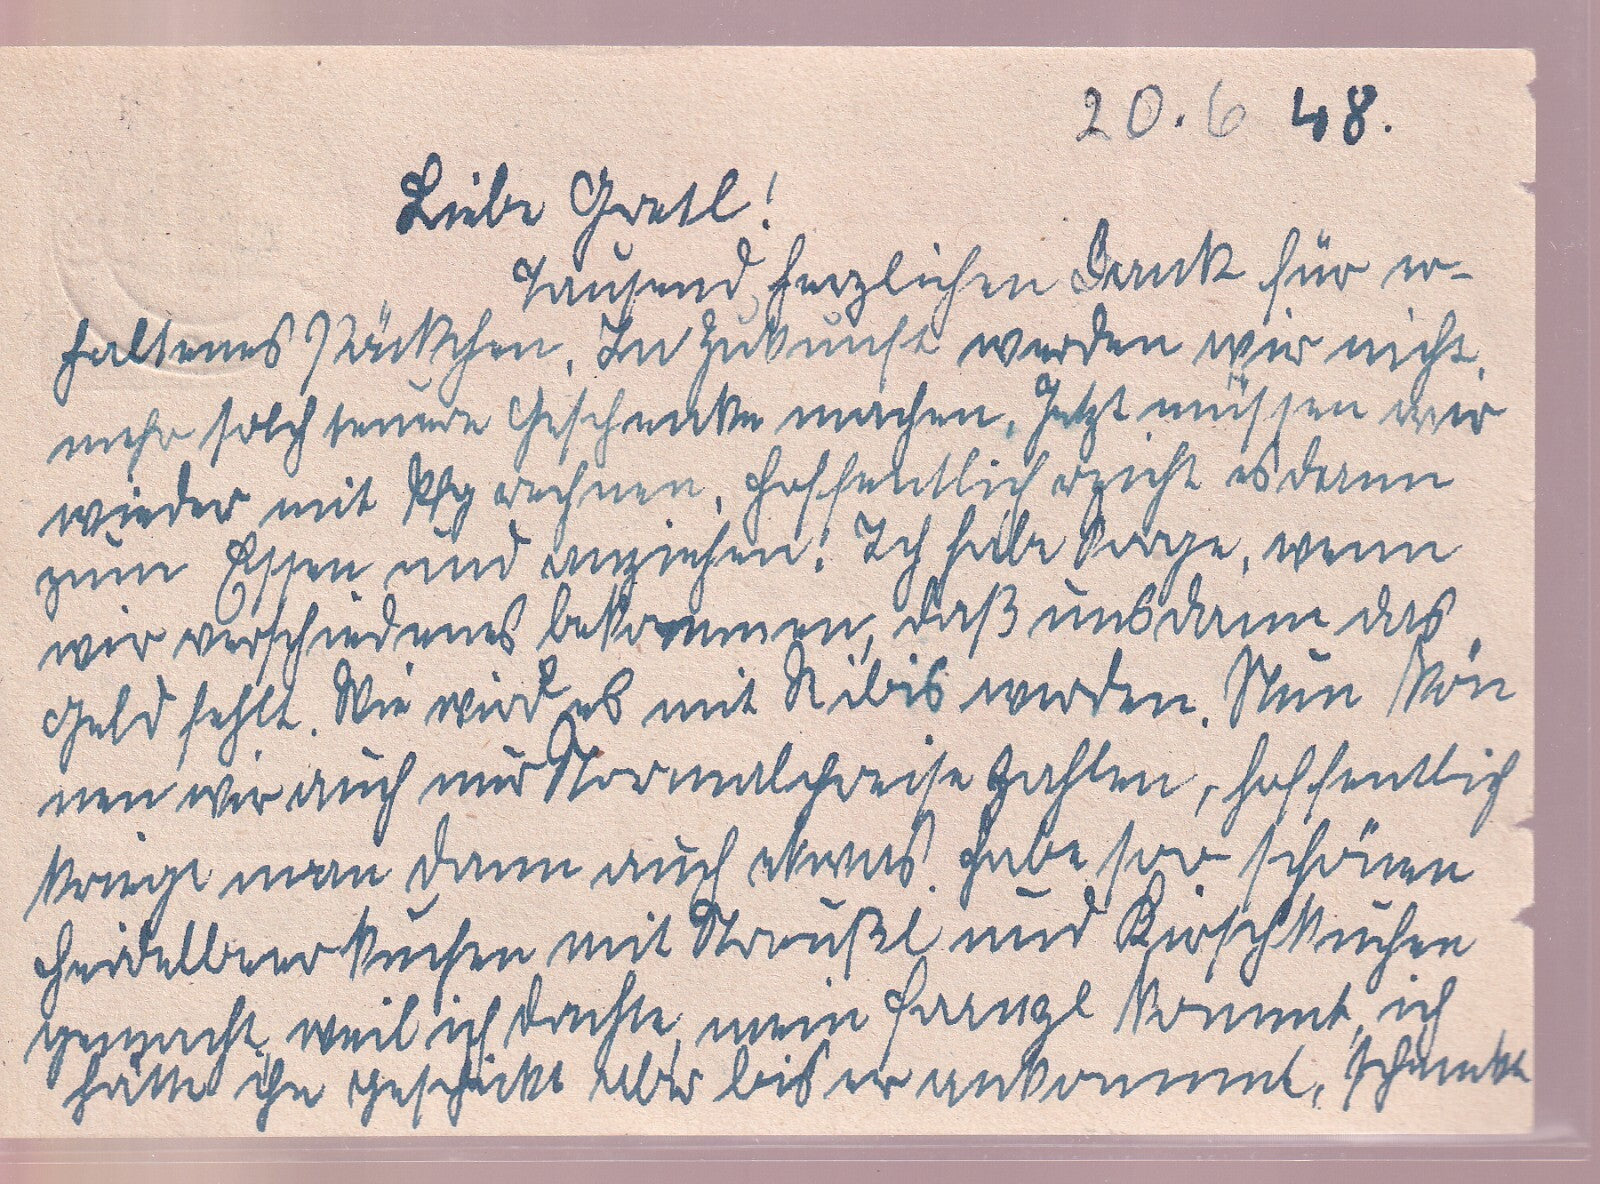 20.6 48.
Liebe Gretl!
Tausend herzlichen Dank für er-
haltenes Päckchen. In Zukunft werden wir nicht
mehr solch teuere Geschenke machen. Jetzt müssen wir
wieder mit Pfg rechnen, hoffentlich reicht es dann
zum Essen und anziehen! Ich habe Sorge, wenn
wir verschiedenes bekommen, daß uns dann das
Geld fehlt. Wie wird es mit Ribis werden. Nun kön
nen wir auch nur Normalpreise zahlen, hoffentlich
kriegt man dann auch etwas. Habe so schönen
Heidelbeerkuchen mit Streußl und Kirschkuchen
gemacht, weil ich dachte, mein Franzl kommt, ich
hätte ihn geschickt aber bis er ankommt,